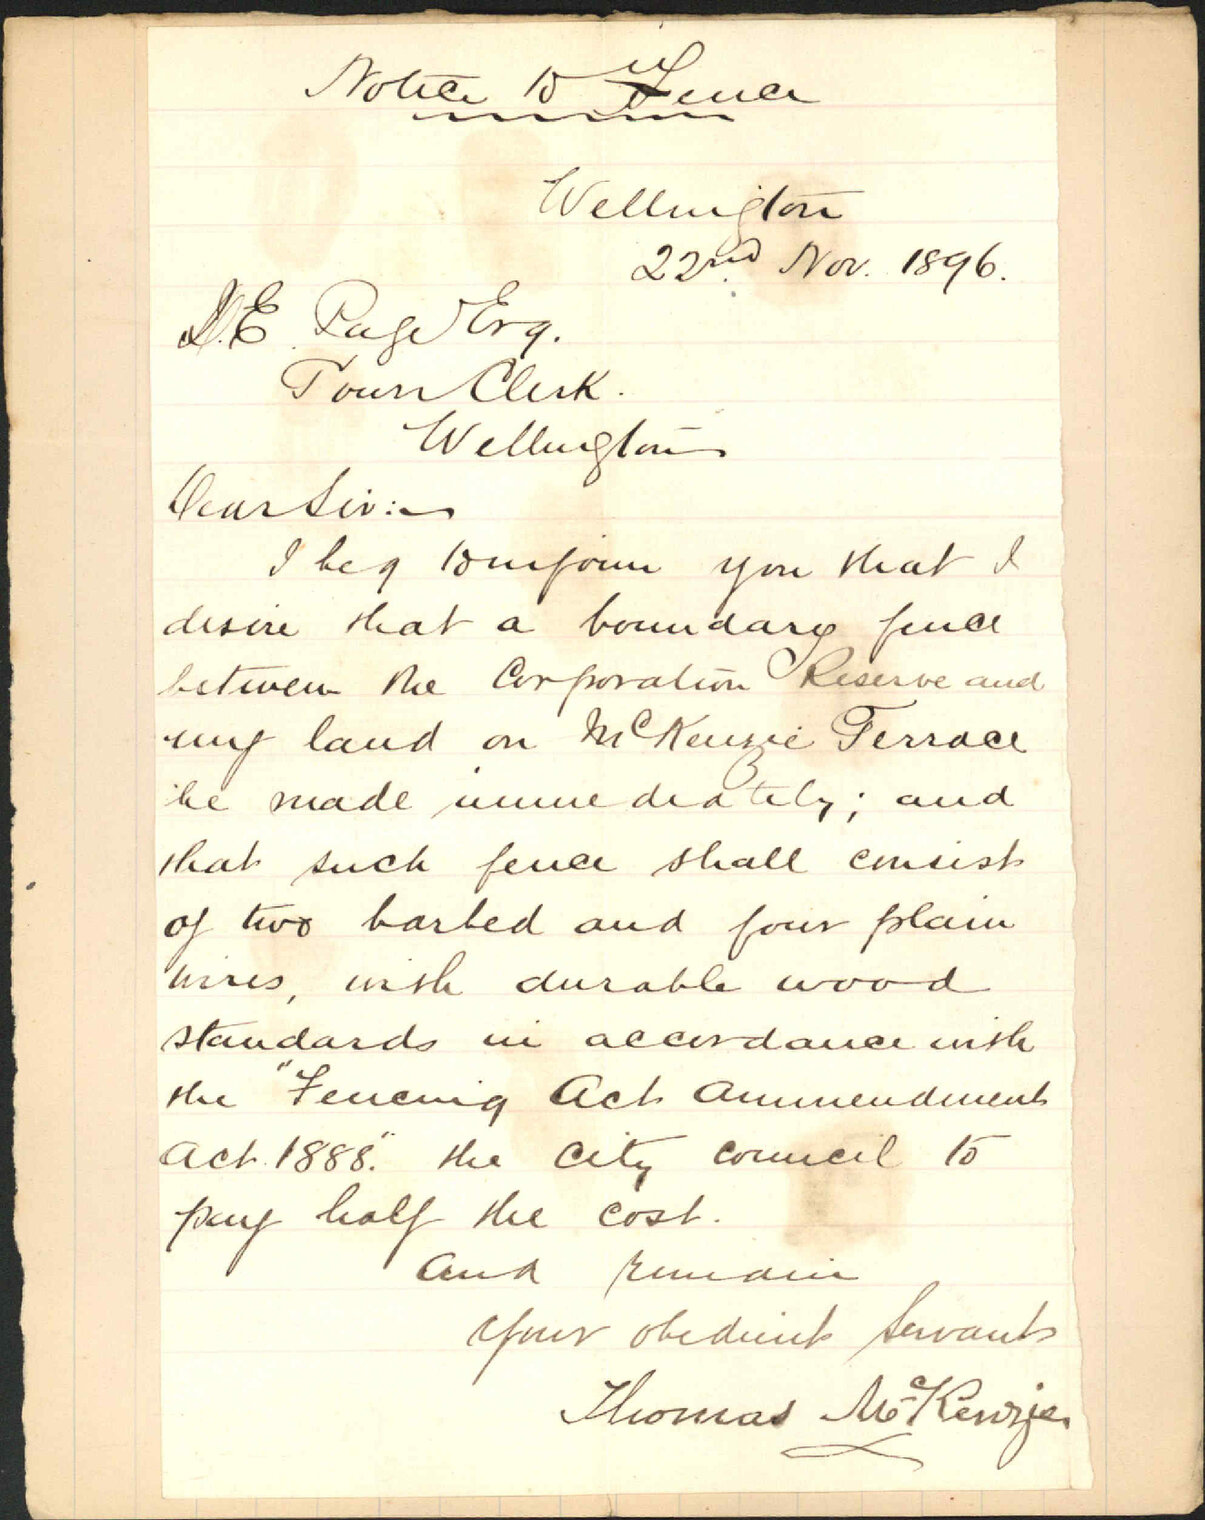 Notice to Fence
Wellington
22nd Nov. 1896.
D.E. Page Esq.
Town Clerk.
Wellington
Dear Sir:-
I beg to inform you that I
desire that a boundary fence
between the Corporation Reserve and
my land on McKenzie Terrace
be made immediately; and
that such fence shall consist
of two barbed and four plain
wires, with durable wood
standards in accordance with
the "Fencing Act Ammendment
Act 1888". the City Council to
pay half the cost.
And remain
Your obedient Servant
Thomas McKenzie